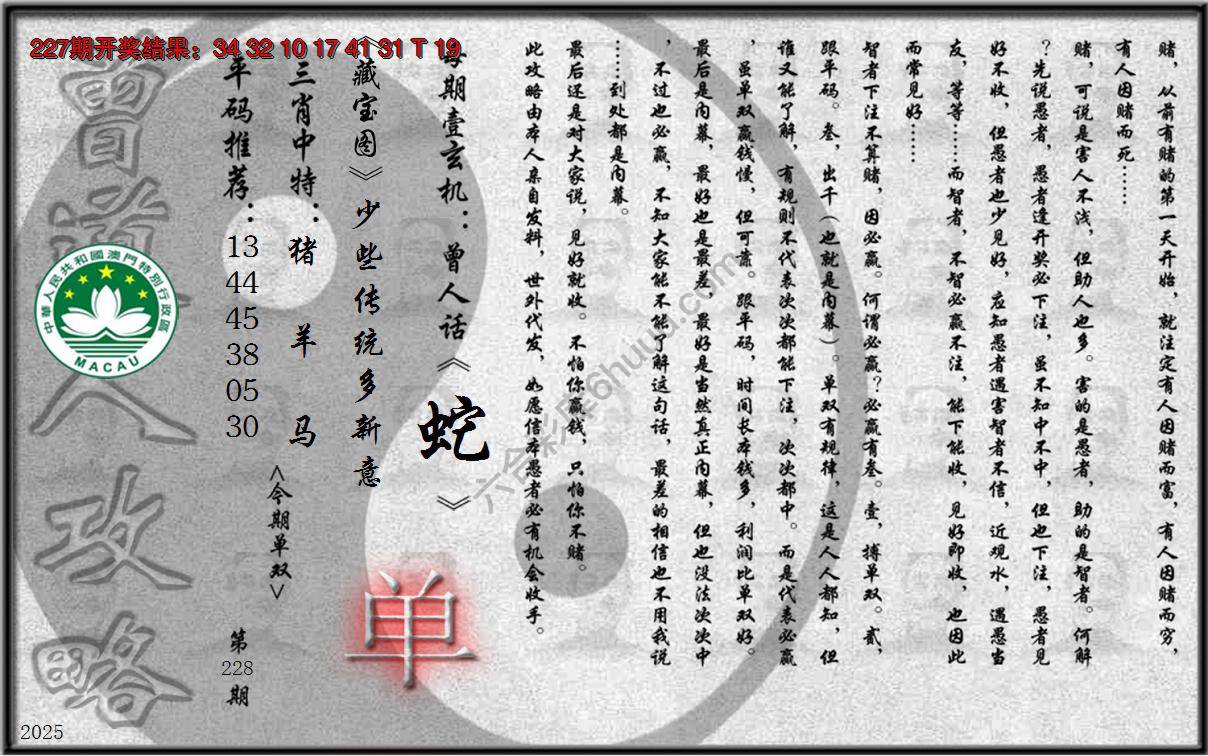 227期开奖结果：34 32 10 17 41 31 T 19
赌，从前有赌的第一天开始，就注定有人因赌而富，有人因赌而穷，
有人因赌而死……
赌，可说是害人不浅，但助人也多。害的是愚者，助的是智者。何解
？先说愚者，愚者逢开奖必下注，虽不知中不中，但也下注，愚者见
好不收，但愚者也少见好，应知愚者遇害智者不信，近观水，遇愚当
友，等等……而智者，不智必赢不注，能下能收，见好即收，也因此
而常见好……
智者下注不算赌，因必赢。何谓必赢？必赢有叁。壹，搏单双。贰，
跟平码。叁，出千（也就是内幕）。单双有规律，这是人人都知，但
谁又能了解，有规则不代表次次都能下注，次次都中。而是代表必赢
，虽单双赢钱慢，但可靠。跟平码，时间长本钱多，利润比单双好。
最后是内幕，最好也是最差，最好是当然真正内幕，但也没法次次中
，不过也必赢，不知大家能不能了解这句话，最差的相信也不用我说
……到处都是内幕。
最后还是对大家说，见好就收。不怕你赢钱，只怕你不赌。
此攻略由本人亲自发料，世外代发，如愿信本愚者必有机会收手。
每期壹玄机：曾人话《蛇》
《藏宝图》少些传统多新意
单
三肖中特：猪 羊 马
<今期单双>
平码推荐：
13
44
45
38
05
30
第
228
期
曾道人攻略
中華人民共和國澳門特別行政區
MACAU
六合彩库6huuu.com
2025